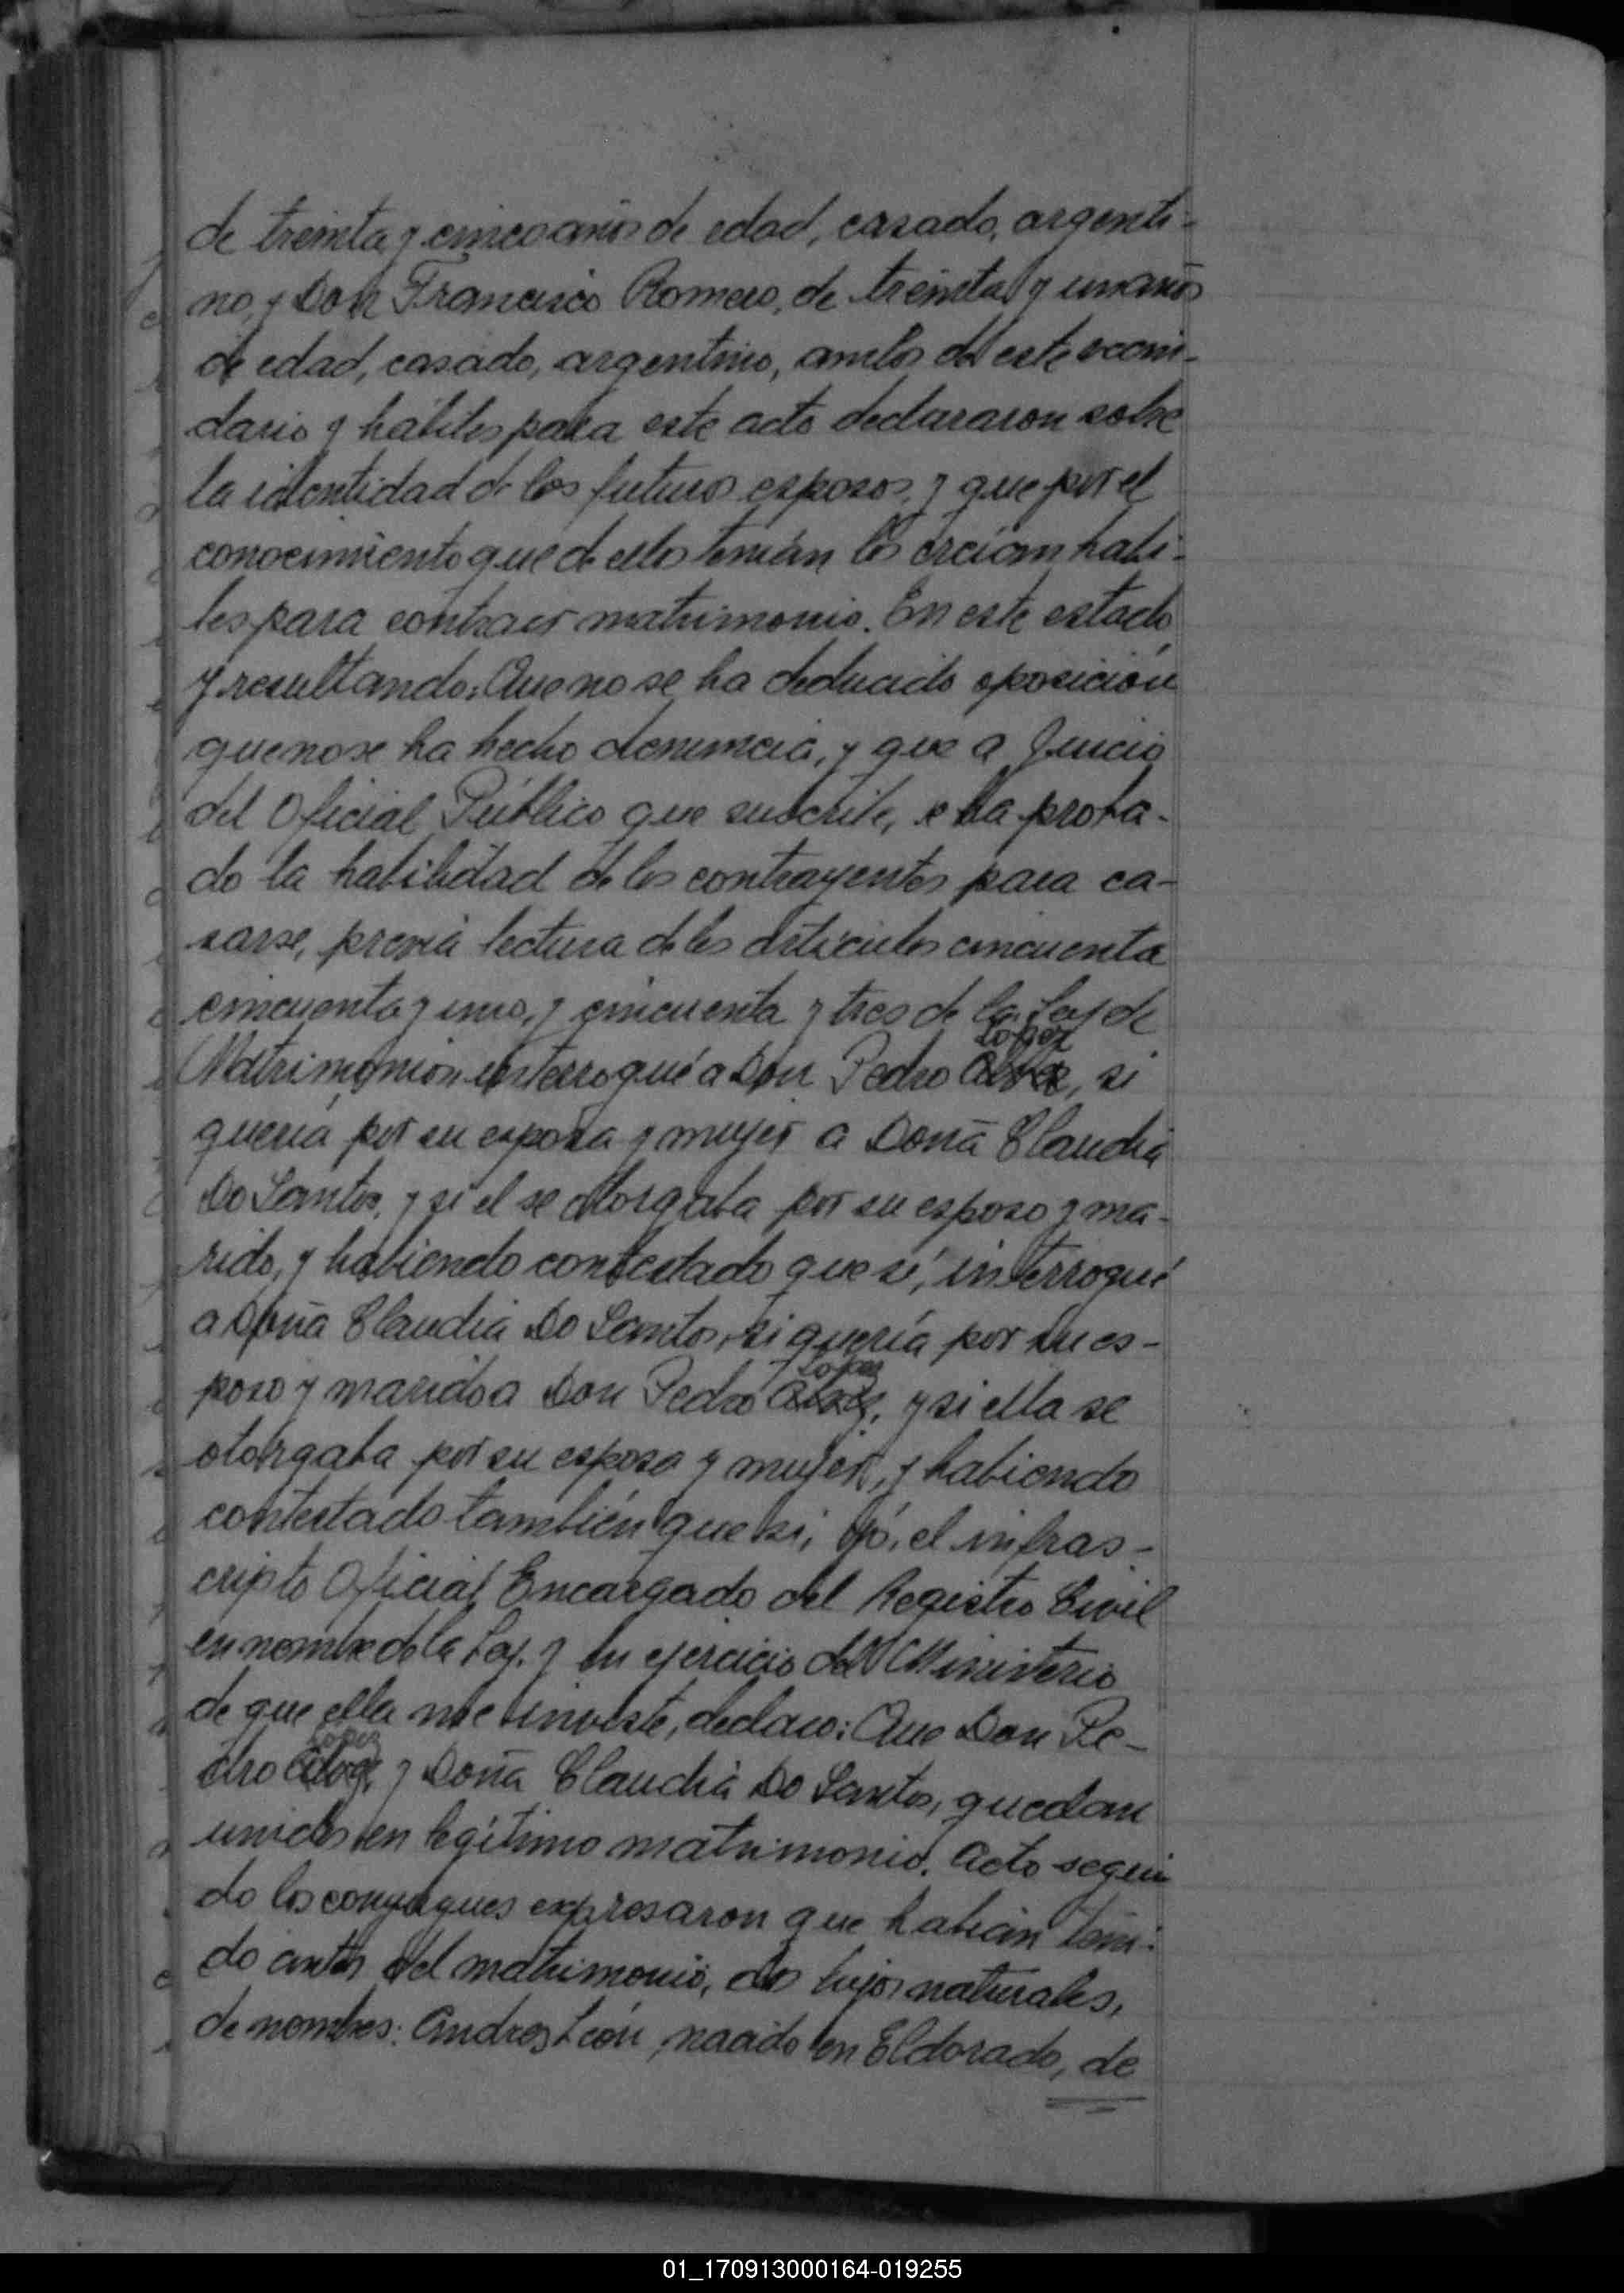 de treinta y cinco años de edad, casado, argenti-
no, y Don Francisco Romero, de treinta y un años
de edad, casado, argentino, ambos de este vecin-
dario y hábiles para este acto declararon sobre
la identidad de los futuros esposos, y que por el
conocimiento que de ellos tenían los creían habi-
les para contraer matrimonio. En este estado
y resultando: Que no se ha deducido oposición
que no se ha hecho denuncia, y que a Juicio
del Oficial Público que suscribe, se ha proba-
do la habilidad de los contrayentes para ca-
sarse, previa lectura de los artículos cincuenta
cincuenta y uno, y cincuenta y tres de la Ley de
López
Matrimonio, interrogué a Don Pedro, si
quería por su esposa y mujer a Doña Claudia
Do Santos, y si el se otorgaba por su esposo y ma-
rido, y habiendo contestado que sí, interrogué
a Doña Claudia Do Santos, si quería por su es-
López
poso y marido a Don Pedro, y si ella se
otorgaba por su esposa y mujer, y habiendo
contestado también que si, yó, el infras-
cripto Oficial Encargado del Registro Civil
en nombre de la Ley, y en ejercicio del Ministerio
de que ella me inviste, declaro: Que Don Pe-
López
dro y Doña Claudia Do Santos, quedan
unidos en legítimo matrimonio. Acto segui
do los conyugues expresaron que habían teni-
do antes del matrimonio, dos hijos naturales,
de nombres: Andres León, nacido en Eldorado, de
01_170913000164-019255